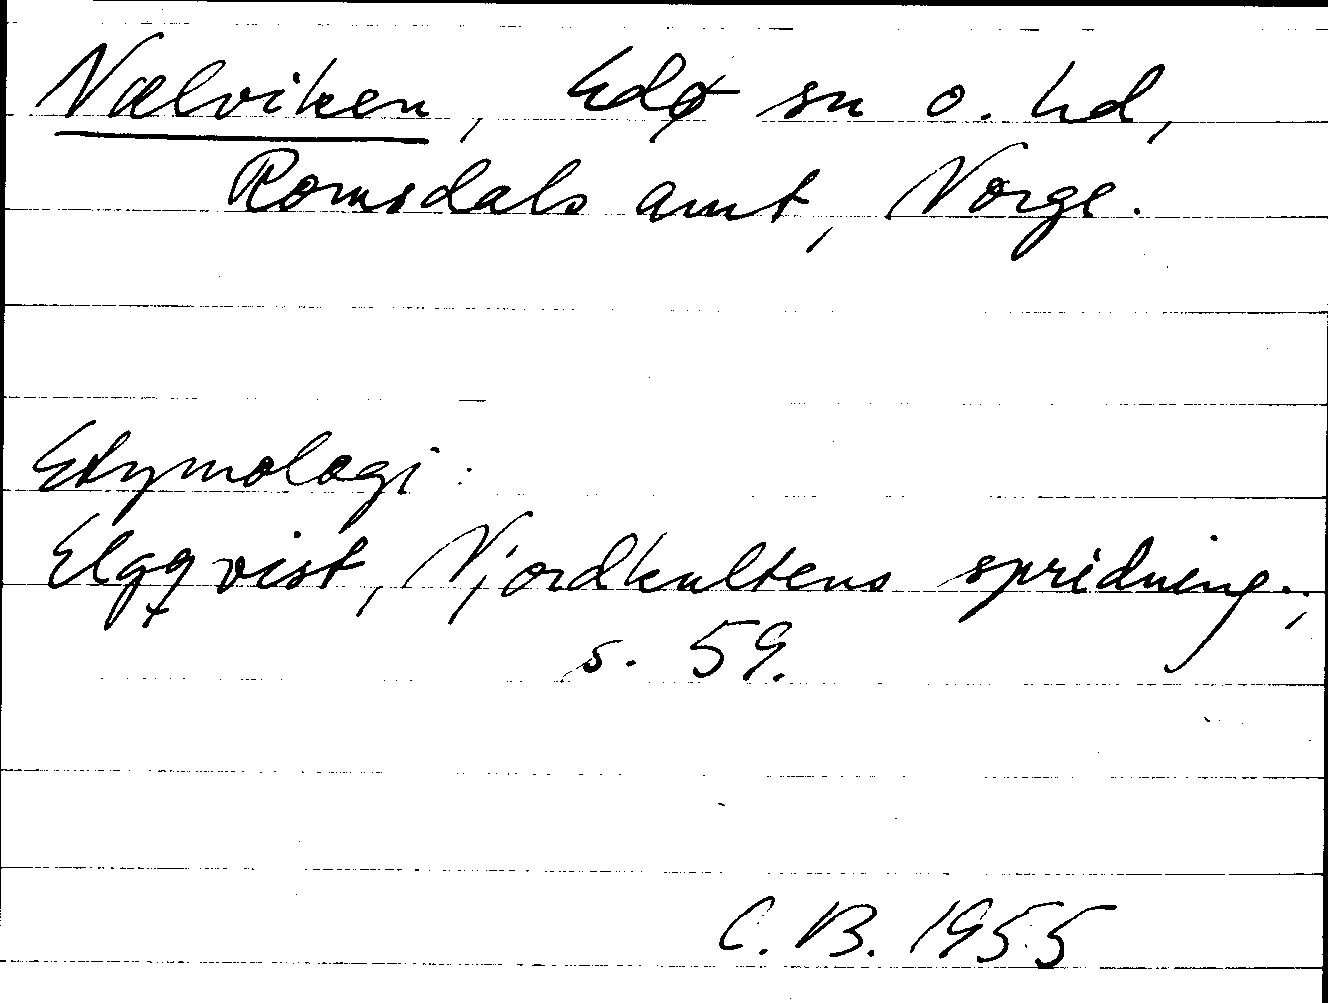 Nælviken, Edø sn o. hd,
Romsdals amt, Norge.
Etymologi:
Elgqvist, Njordkultens spridning.,
s. 59.
C. B. 1955